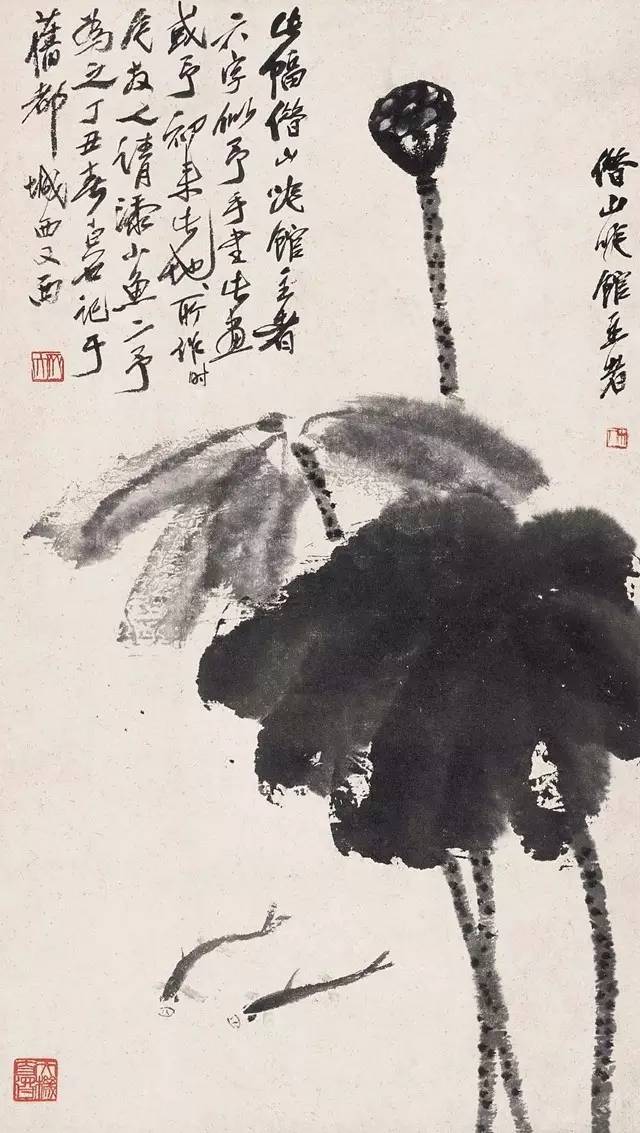 借山吟館主者
此幅借山吟館主者
六字似予手書此畫
或予初來此地所作时
人請添小魚二予
為之丁丑春白石記于
舊都城西又西